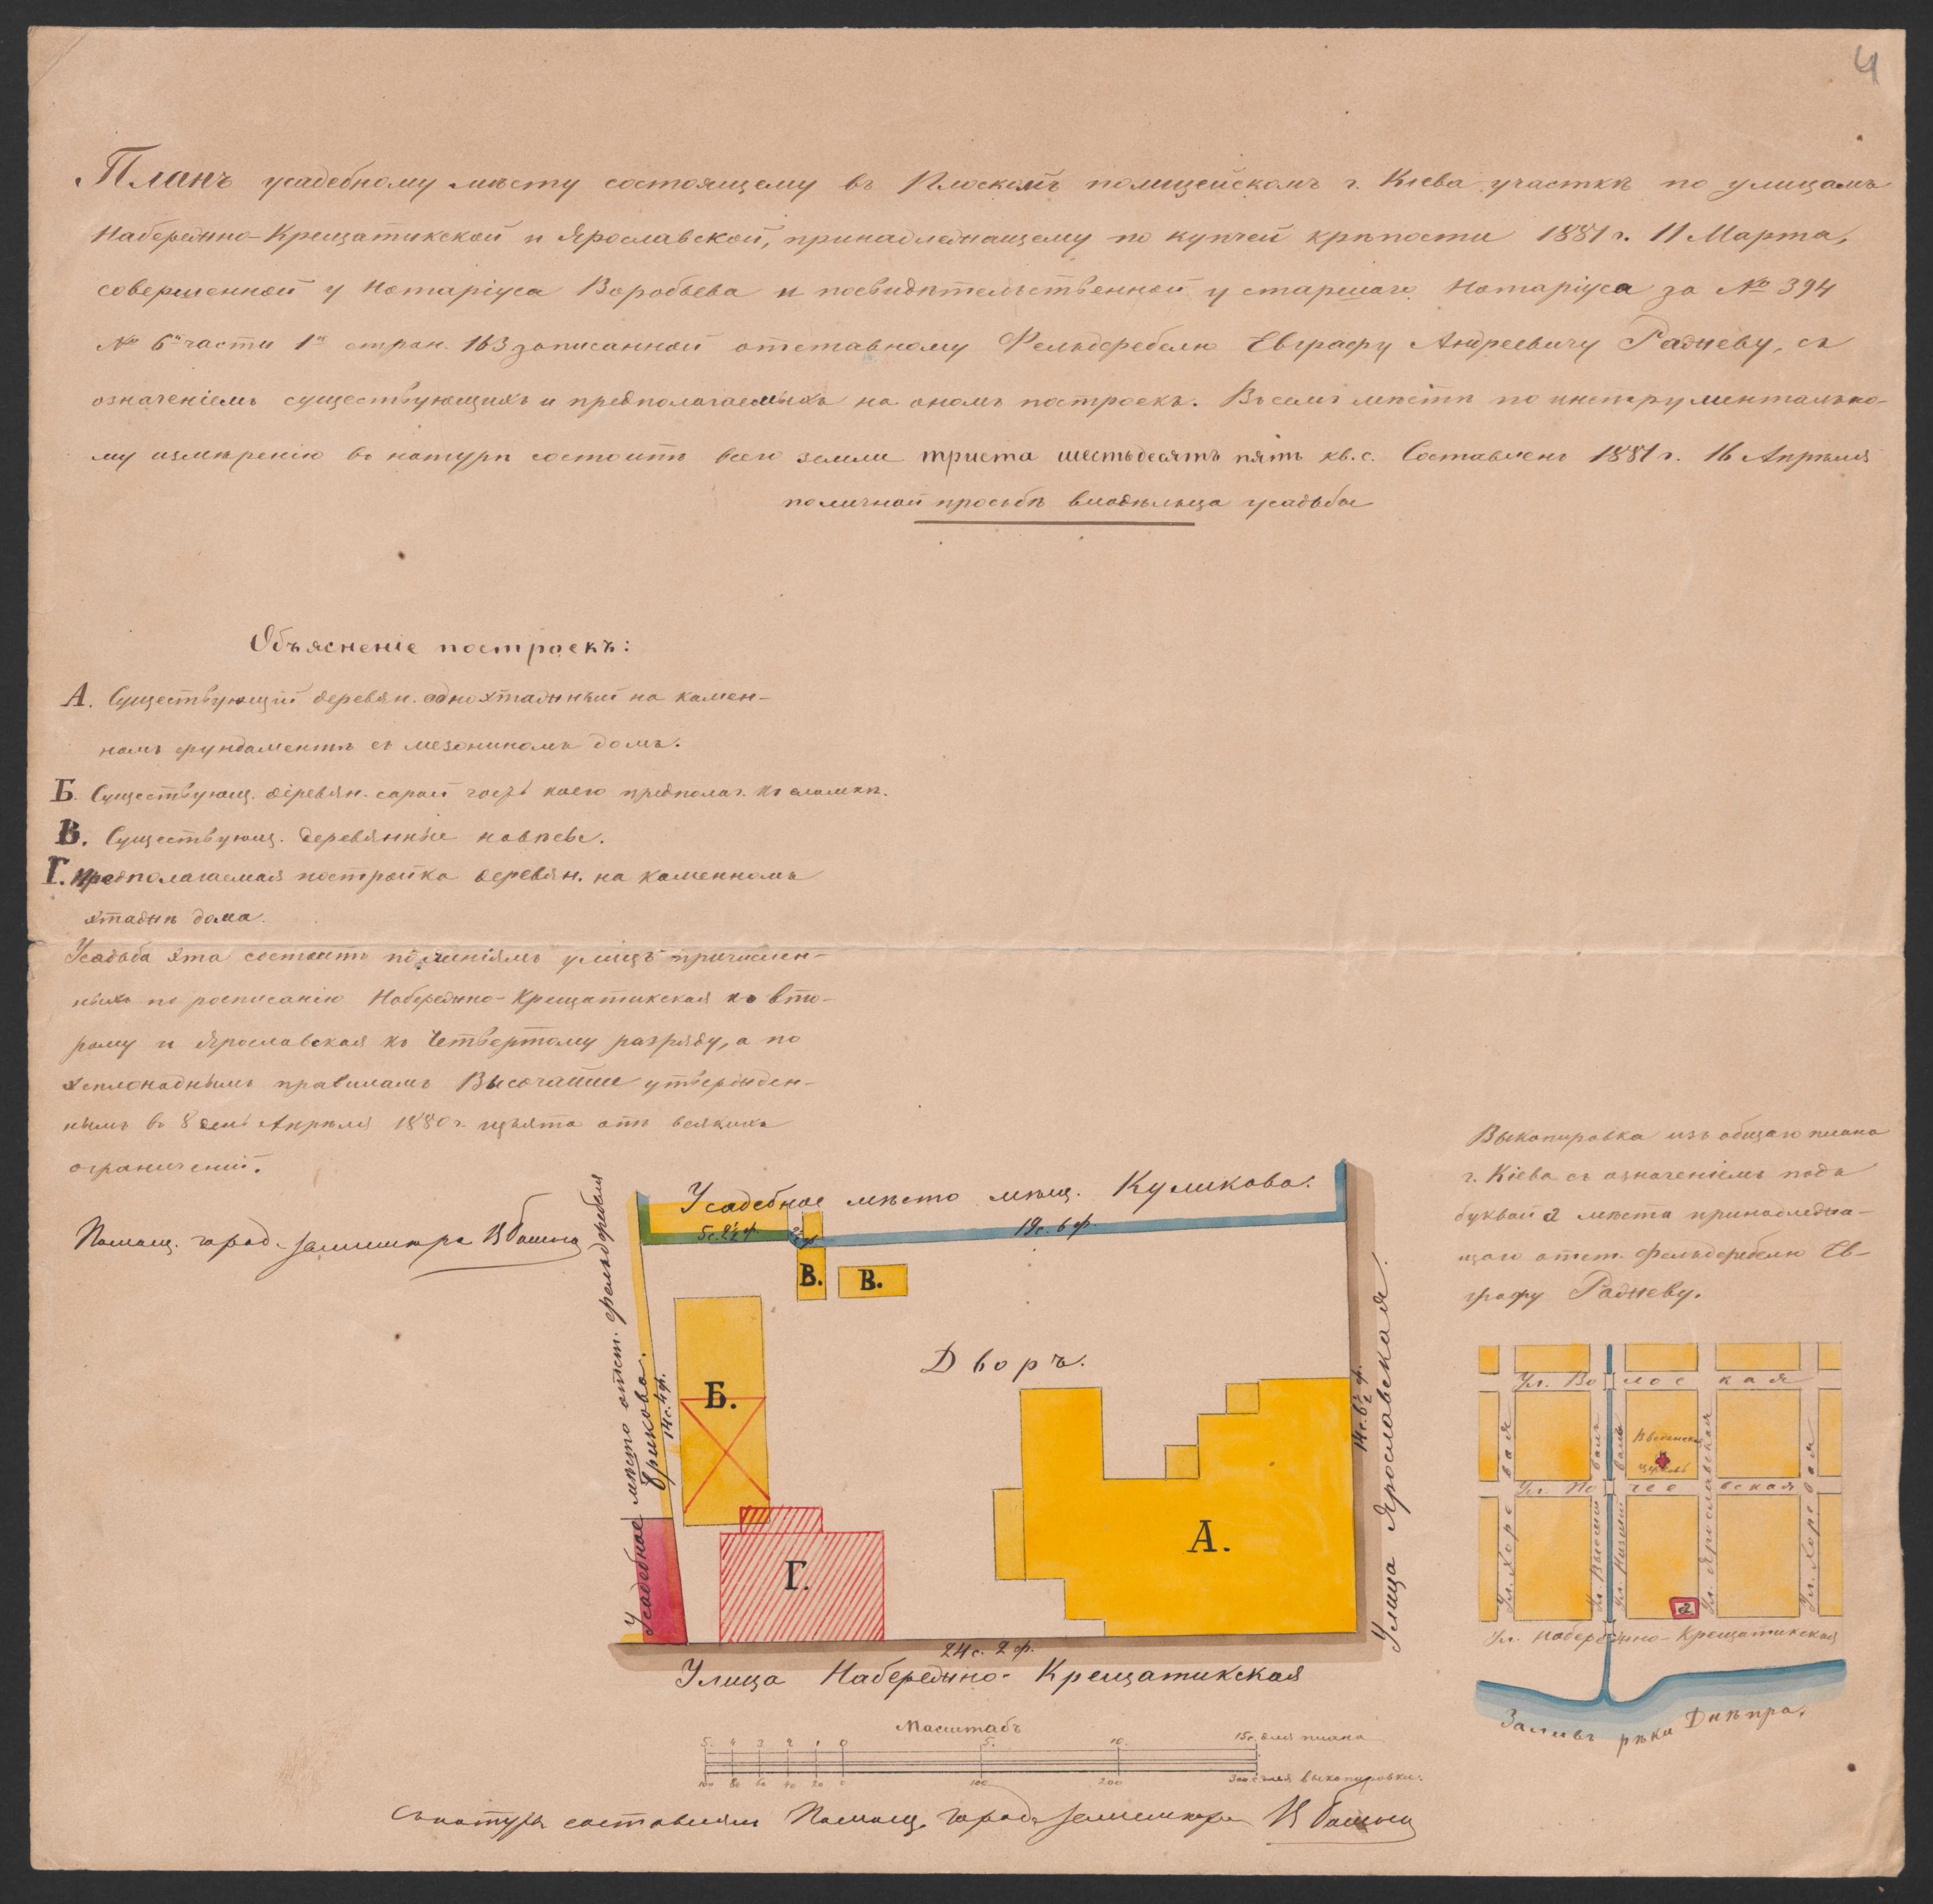 4
Планъ усадебному мѣсту состоящему въ Плоскомъ полицейскомъ г. Кіева участкѣ по улицамъ
Набережно-Крещатикской и Ярославской, принадлежащему по купчей крѣпости 1881 г. 11 Марта,
совершенной у Нотаріуса Воробьева и посвидѣтельственной у старшаго Нотаріуса за № 394
№ 6й части 1й стран. 163 записанной отставному Фельдфебелю Евграфу Андреевичу Радневу, съ
означеніемъ существующихъ и предполагаемыхъ на ономъ построекъ. Въ семъ мѣстѣ по инструментально-
му измѣренію въ натурѣ состоитъ всего земли триста шестьдесятъ пять кв. с. Составленъ 1881 г. 16 Апрѣля
по личной просьбѣ владѣльца усадьбы
Объясненіе построекъ:
А. Существующій деревян. одноэтажный на камен-
номъ фундаментѣ съ мезониномъ домъ.
Б. Существующ. деревян. сарай часть коего предполаг. къ сломкѣ.
В. Существующ. деревянные хлѣвы.
Г. Предполагаемая постройка деревян. на каменномъ
этажѣ дома.
Усадьба эта состоитъ по линіямъ улицъ причислен-
ныхъ по росписанію Набережно-Крещатикская ко вто-
рому и Ярославская къ Четвертому разряду, а по
эспланаднымъ правиламъ Высочайше утвержден-
нымъ въ 8 день Апрѣля 1880 г. изъята отъ всякихъ
ограниченій.
Помощ. город. землемѣра
Усадебное мѣсто мѣщ. Куликова.
5 с. 2½ ф.
2 ф.
19 с. 6 ф.
В.
В.
Усадебное мѣсто отст. фельдфебеля
Ерикова.
14 с. 4 ф.
Б.
Дворъ.
Г.
А.
14 с. 6½ ф.
Улица Ярославская.
24 с. 2 ф.
Улица Набережно-Крещатикская
Масштабъ
5. 4 3 2 1 0 5. 10. 15 с. для плана
100 80 60 40 20 0 100 200 300 с. для выкопировки.
Съ натуры составлялъ Помощ. город. землемѣра
Выкопировка изъ общаго плана
г. Кіева съ означеніемъ подъ
буквой а мѣста принадлежа-
щаго отст. Фельдфебелю Ев-
графу Радневу.
Ул. Волоская
Ул. Хоревая
Ул. Высшій валъ
Ул. Низшій валъ
Введенская
церковь
Ул. Ярославская
Ул. Хоревая
Ул. Почаевская
а
Ул. Набережно-Крещатикская
Заливъ рѣки Днѣпра.